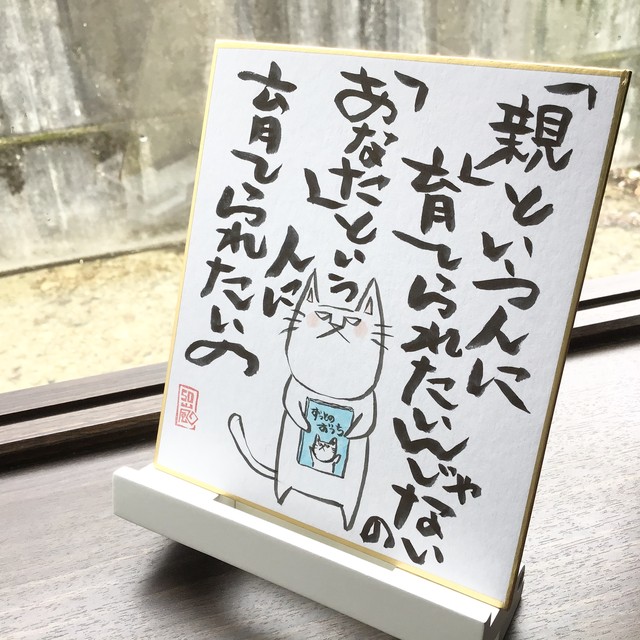 「親」という人に
育てられたいんじゃない
の
「あなた」という
人に
育てられたいの
ずっとの
おうち